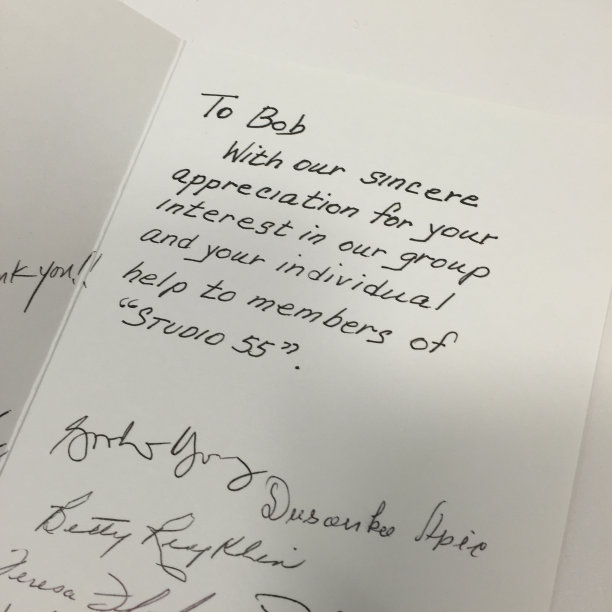 To Bob
With our sincere
appreciation for your
interest in our group
and your individual
help to members of
"STUDIO 55".
you!!
Young
Dusanka
Betty
Teresa